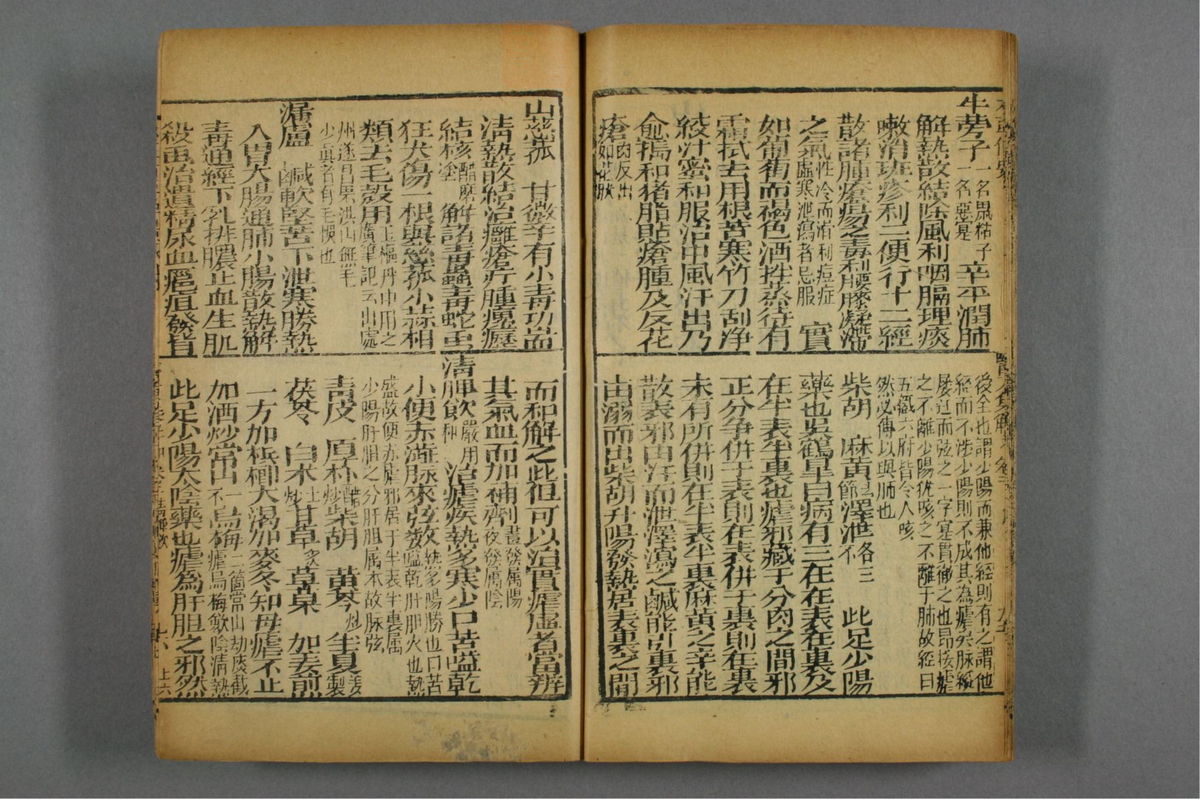 牛蒡子一名鼠粘子一名惡實 辛平潤肺
解熱散結除風利咽膈理痰
嗽消斑疹利二便行十二經
散諸腫瘡瘍之毒利腰膝凝滯
之氣性冷而滑利痘症虛寒泄瀉者忌服 實
如葡萄而褐色酒拌蒸待有
霜拭去用根苦寒竹刀刮淨
絞汁蜜和服治中風汗出乃
愈搗和猪脂貼瘡腫及反花
瘡肉反出如花狀
後全也謂少陽而兼他經則有之謂他
經而不 少陽則不成其為瘧矣脉縱
屡迁而弦之一字寔貫御之也昂按瘧
之不離少陽犹咳之不離于肺故經曰
五臟六府皆令人咳
然必傳以與肺也
柴胡 麻黃去節 澤泄各三不 此足少陽
藥也吳鶴皐曰病有三在在表在裏及
在半表半裏也瘧邪藏于分肉之間邪
正分争併于表則在表併于裏則在裏
未有所併則在半表半裏麻黃之辛能
散表邪由汗而泄澤瀉之鹹能引裏邪
由溺而出柴胡升陽發熱居表裏之間
山茨菰 甘微辛有小毒功耑
清熱散結治癰瘡疔腫瘰癧
結核醋磨塗 解諸毒蠱毒蛇虫
狂犬傷 根與慈菰小蒜相
類去毛殼用玉樞丹中用之廣筆記云出處
州遂昌果洪山無毛
少真者有毛悞也
漏盧 鹹軟堅苦下泄寒勝熱
入胃大腸通肺小腸散熱解
毒通經下乳排膿止血生肌
殺虫治遺精尿血瘧疽發背
而和解之此但可以治實瘧虛者當辨
其氣血而加補劑晝發屬陽夜發屬陰
清脾飲嚴用和 治瘧疾熱多寒少口苦嗌乾
小便赤澁脉來弦数熱多陽勝也口苦嗌乾肝胆火也熱
盛故便赤瘧邪居于半表半裏属
少陽肝胆之分肝胆属木故脉弦
青皮 厚朴醋炒 柴胡 黃芩炒 半夏姜製
茯苓 白朮土炒 甘草炙 草菓 加姜煎
一方加梹榔大渴加麥冬知母瘧不止
加酒炒常山一不 烏梅二箇常山劫痰截瘧烏梅歛陰清熱
此足少陽太陰藥也瘧為肝胆之邪然